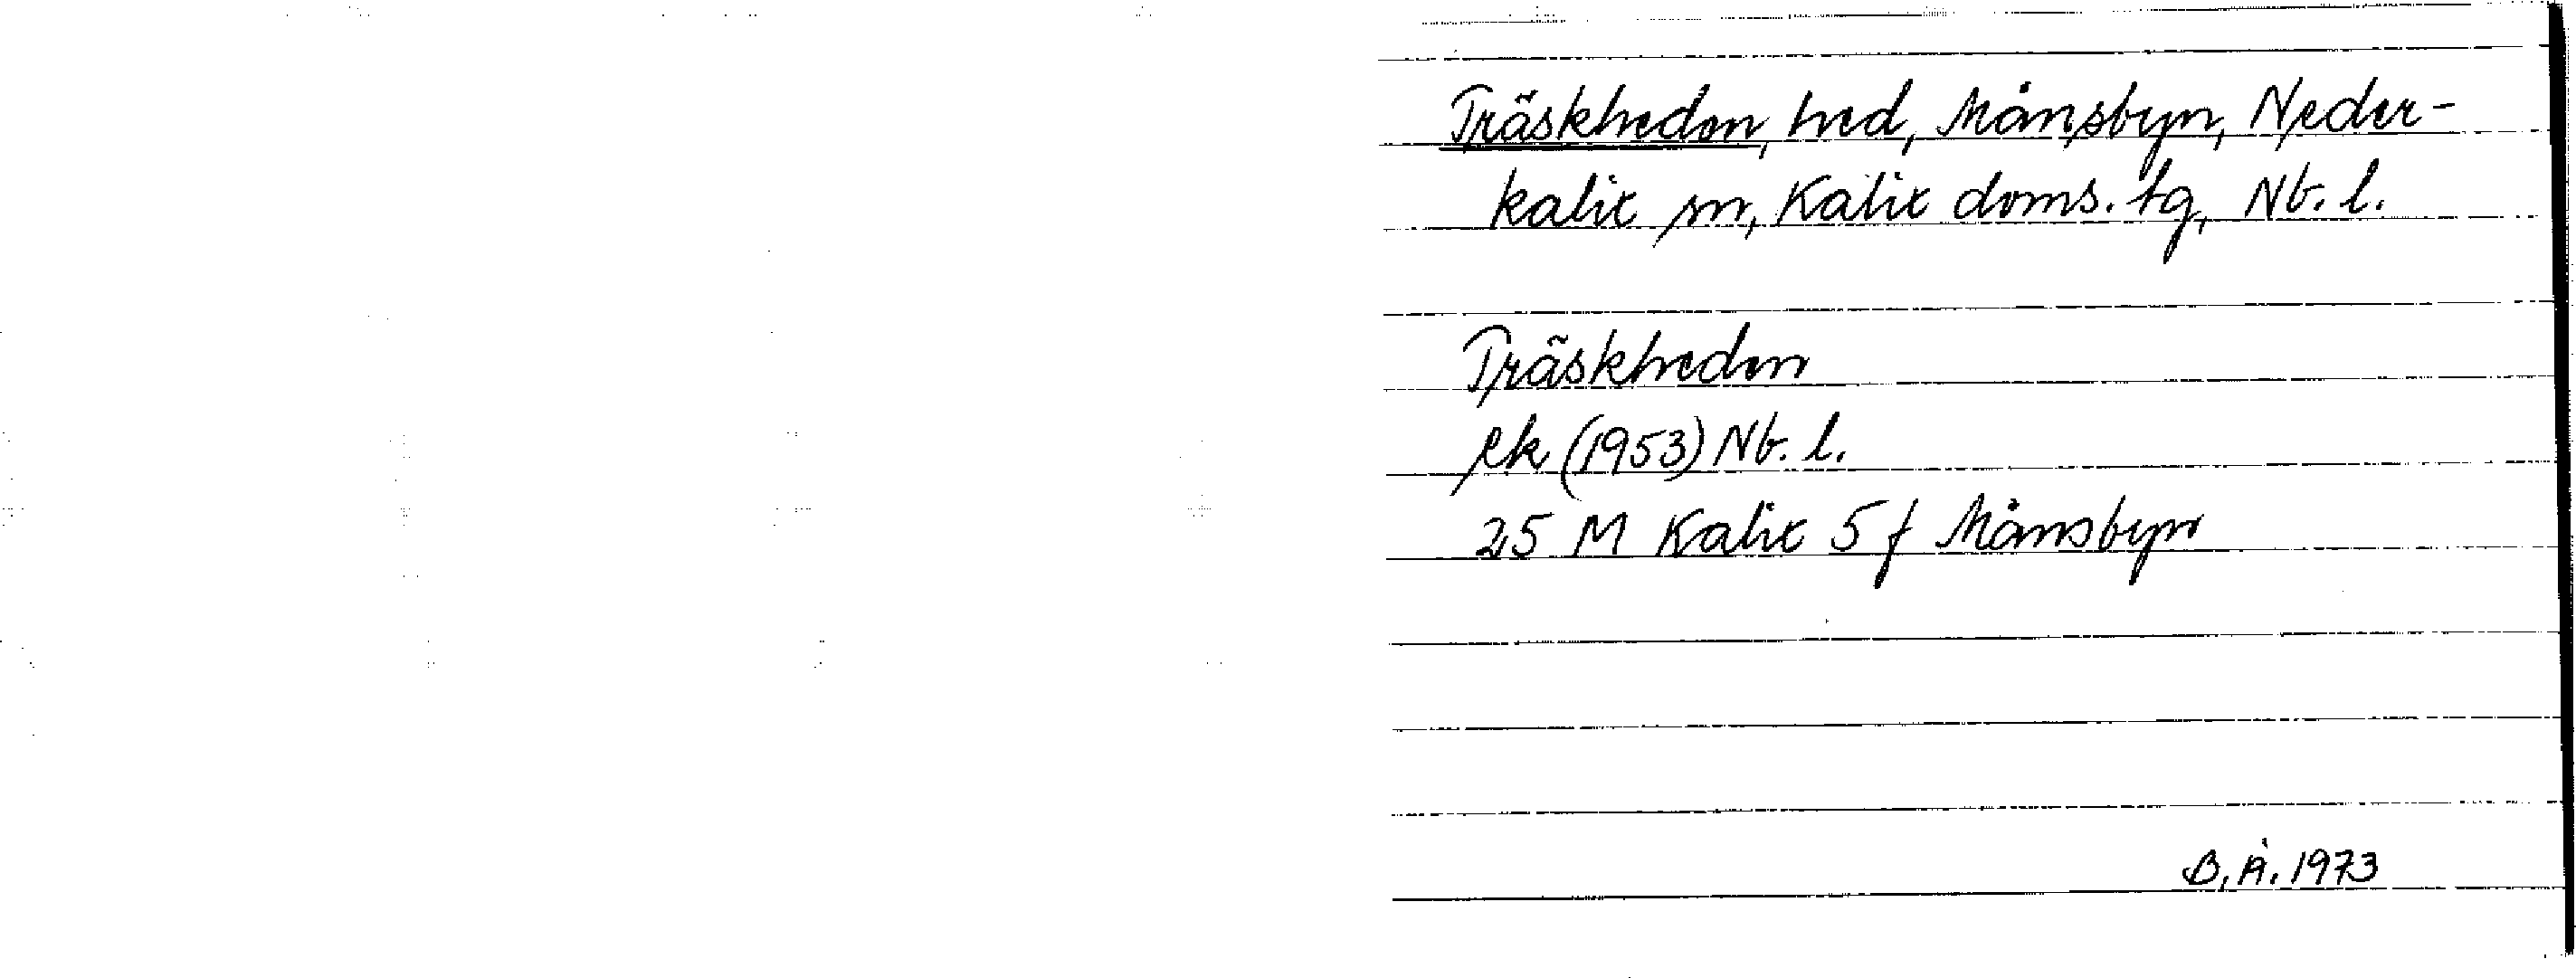 Träskheden, hed, Månsbyn, Neder-
kalix sn, Kalix doms. tg, Nb. l.
Träskheden
ek (1953) Nb. l.
25 M Kalix 5 f Månsbyn
B. Å. 1973